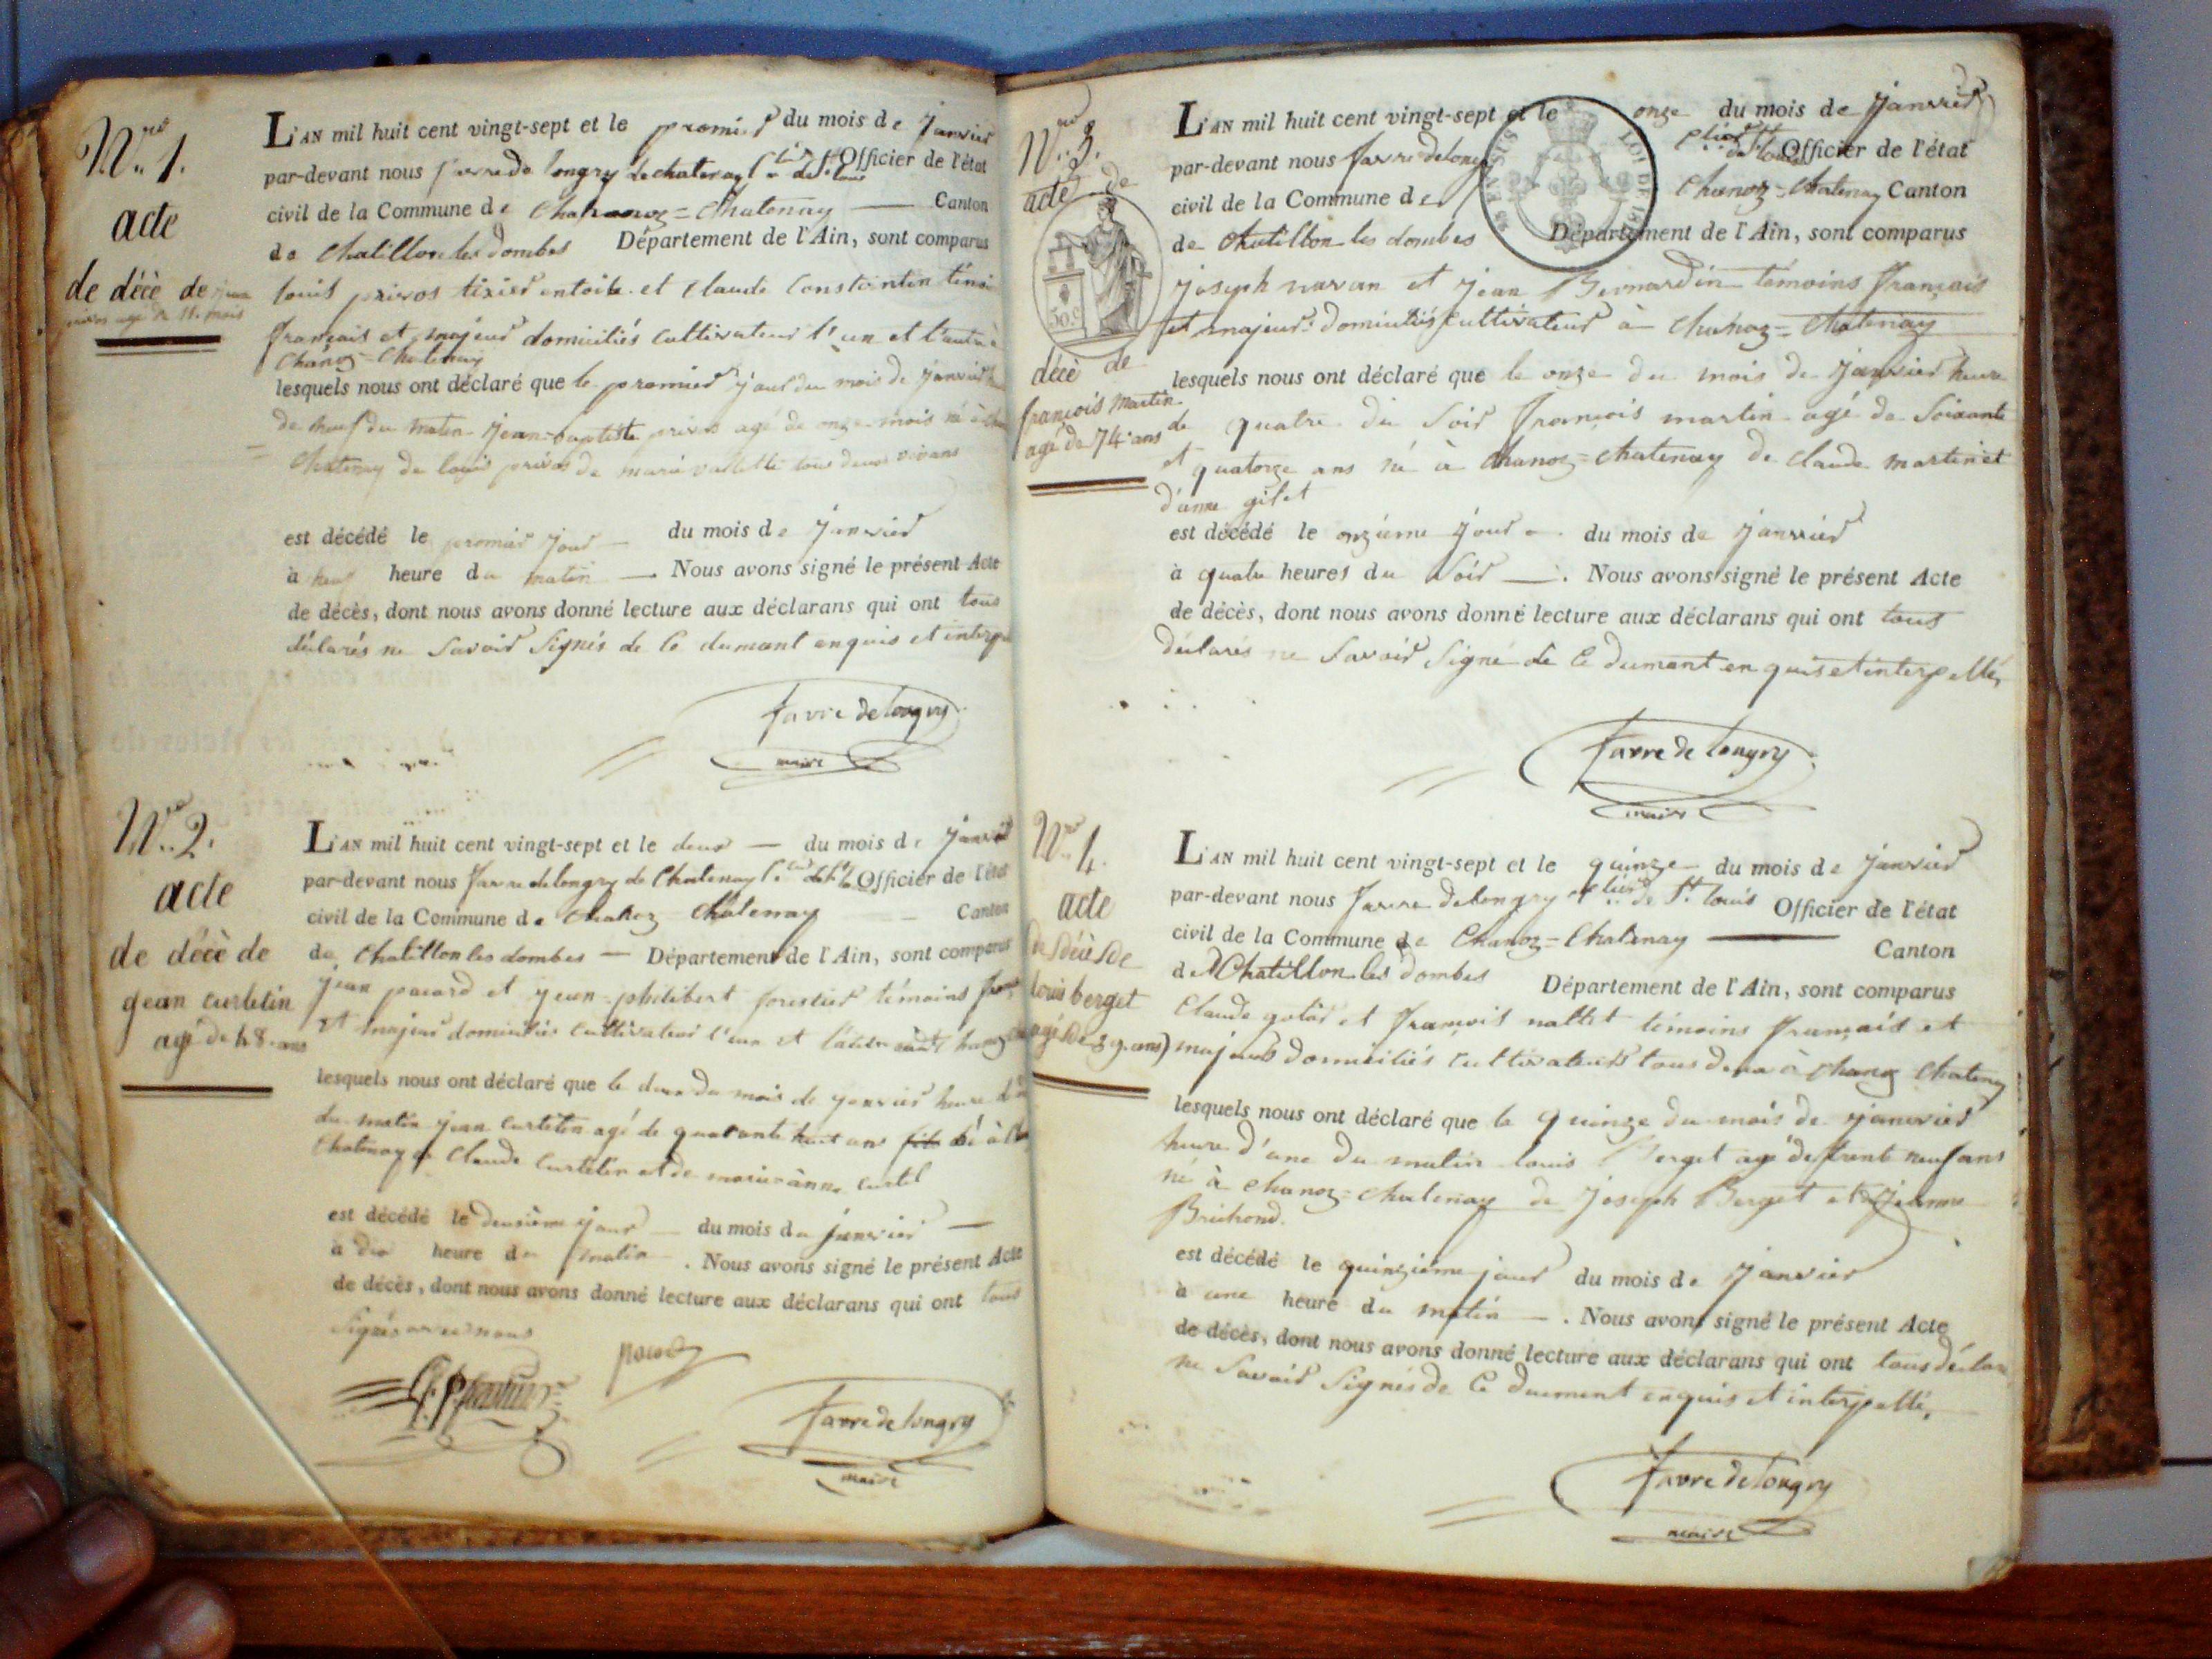 Nro 1.
acte
de décè de jean
privos agé de 11. mois
L'AN mil huit cent vingt-sept et le premier du mois de janvier
par-devant nous favre de longry de chatenay c.lier de St. louis Officier de l'état
civil de la Commune de Chanoz = Chatenay — Canton
de Chatillon les dombes Département de l'Ain, sont comparus
louis privos tixier en toile et Claude Constantin témoins
français et majeur domiciliés cultivateur l'un et l'autre à
Chanoz = Chatenay
lesquels nous ont déclaré que le premier jour du mois de janvier
de neuf du matin jean-baptiste privos agé de onze mois né à
Chatenay de louis privos de marie vallette tous deux vivans
est décédé le premier jour — du mois de janvier
à neuf heure du matin —. Nous avons signé le présent Acte
de décès, dont nous avons donné lecture aux déclarans qui ont tous
déclarés ne savoir signés de ce dument enquis et interpe
favre de longry
maire
Nro 2.
acte
de décè de
jean curtetin
agé de 48. ans
L'AN mil huit cent vingt-sept et le deux — du mois de janvier
par-devant nous favre de longry de Chatenay Officier de l'état
civil de la Commune de Chanoz Chatenay — Canton
de Chatillon les dombes — Département de l'Ain, sont comparus
jean pacard et jean-philibert forestier témoins
et majeur domiciliés cultivateur l'un et l'autre
lesquels nous ont déclaré que le deux du mois de janvier heure
du matin jean curtetin agé de quarante huit ans fils né à
Chatenay de Claude Curtetin et de marie-anne curtel
est décédé le deuxième jour — du mois de janvier —
à dix heure du matin . Nous avons signé le présent Acte
de décès, dont nous avons donné lecture aux déclarans qui ont tous
signés avec nous
pacard
favre de longry
maire
Nro 3.
acte de
50.c
décè de
françois martin
agé de 74. ans
L'AN mil huit cent vingt-sept et le onze du mois de janvier
par-devant nous favre de longry c.lier de St. louis Officier de l'état
civil de la Commune de Chanoz = Chatenay Canton
de Chatillon les dombes Département de l'Ain, sont comparus
joseph navan et jean Bernardin témoins français
et majeur domiciliés cultivateur à Chanoz = Chatenay
lesquels nous ont déclaré que le onze du mois de janvier heure
de quatre du soir françois martin agé de soixante
et quatorze ans né à Chanoz = chatenay de Claude martin et
d'anne gilet
est décédé le onzième jour — du mois de janvier
à quatre heures du soir —. Nous avons signé le présent Acte
de décès, dont nous avons donné lecture aux déclarans qui ont tous
déclarés ne savoir signé de ce dument enquis et interpellé,
favre de longry
maire
Nro 4.
acte
de décè de
louis berget
agé de 39. ans
L'AN mil huit cent vingt-sept et le quinze du mois de janvier
par-devant nous favre de longry c.lier de St. louis Officier de l'état
civil de la Commune de Chanoz = Chatenay — Canton
de Chatillon les dombes Département de l'Ain, sont comparus
Claude et françois nallet témoins français et
majeurs domiciliés cultivateurs tous deux à Chanoz Chatenay
lesquels nous ont déclaré que le quinze du mois de janvier
heure d'une du matin louis Berget agé de trente neuf ans
né à Chanoz = chatenay de joseph Berget et de jeanne
Brichond.
est décédé le quinzième jour du mois de janvier
à une heure du matin —. Nous avons signé le présent Acte
de décès, dont nous avons donné lecture aux déclarans qui ont tous déclaré
ne savoir signés de ce dument enquis et interpellé,
favre de longry
maire